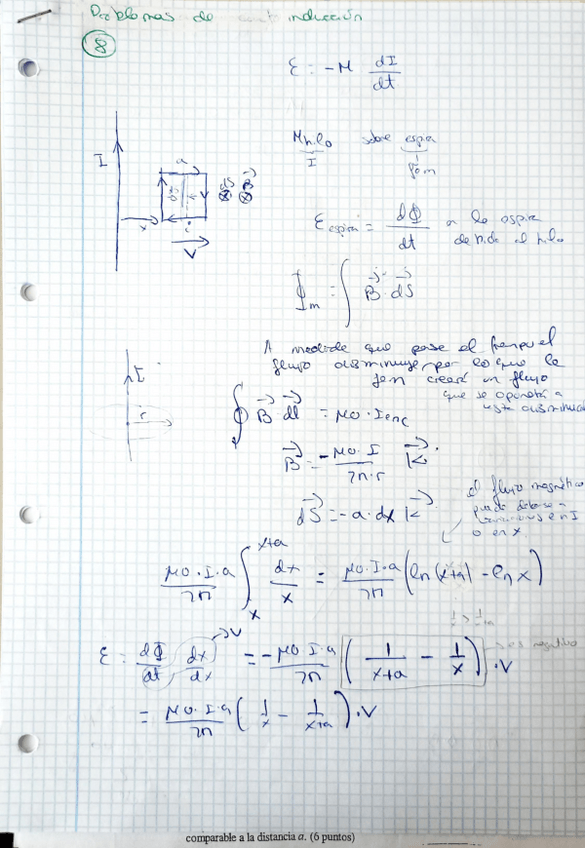 Problemas de inducción
8
ε = -M dI/dt
I
a
dx
dS B
x
i
V
M hilo/I sobre espira
fem
ε espira = dΦ/dt a la espira
debido al hilo
Φm = ∫ B · dS
A medida que pase el tiempo el
flujo disminuye por lo que la
fem creará un flujo
que se opondrá a
esta disminución
I
r
∮ B dl = μ0 · Ienc
B = -μ0 · I/2π·r K
dS = -a·dx K
el flujo magnético
puede deberse a
variaciones en I
o en x
μ0·I·a/2π ∫ₓ^(x+a) dx/x = μ0·I·a/2π (ln(x+a) - ln x)
ε = dΦ/dt dx/dx → V = -μ0 I·a/2π (1/(x+a) - 1/x)·V
1/x > 1/(x+a)
es negativo
= μ0·I·a/2π (1/x - 1/(x+a))·V
comparable a la distancia a. (6 puntos)